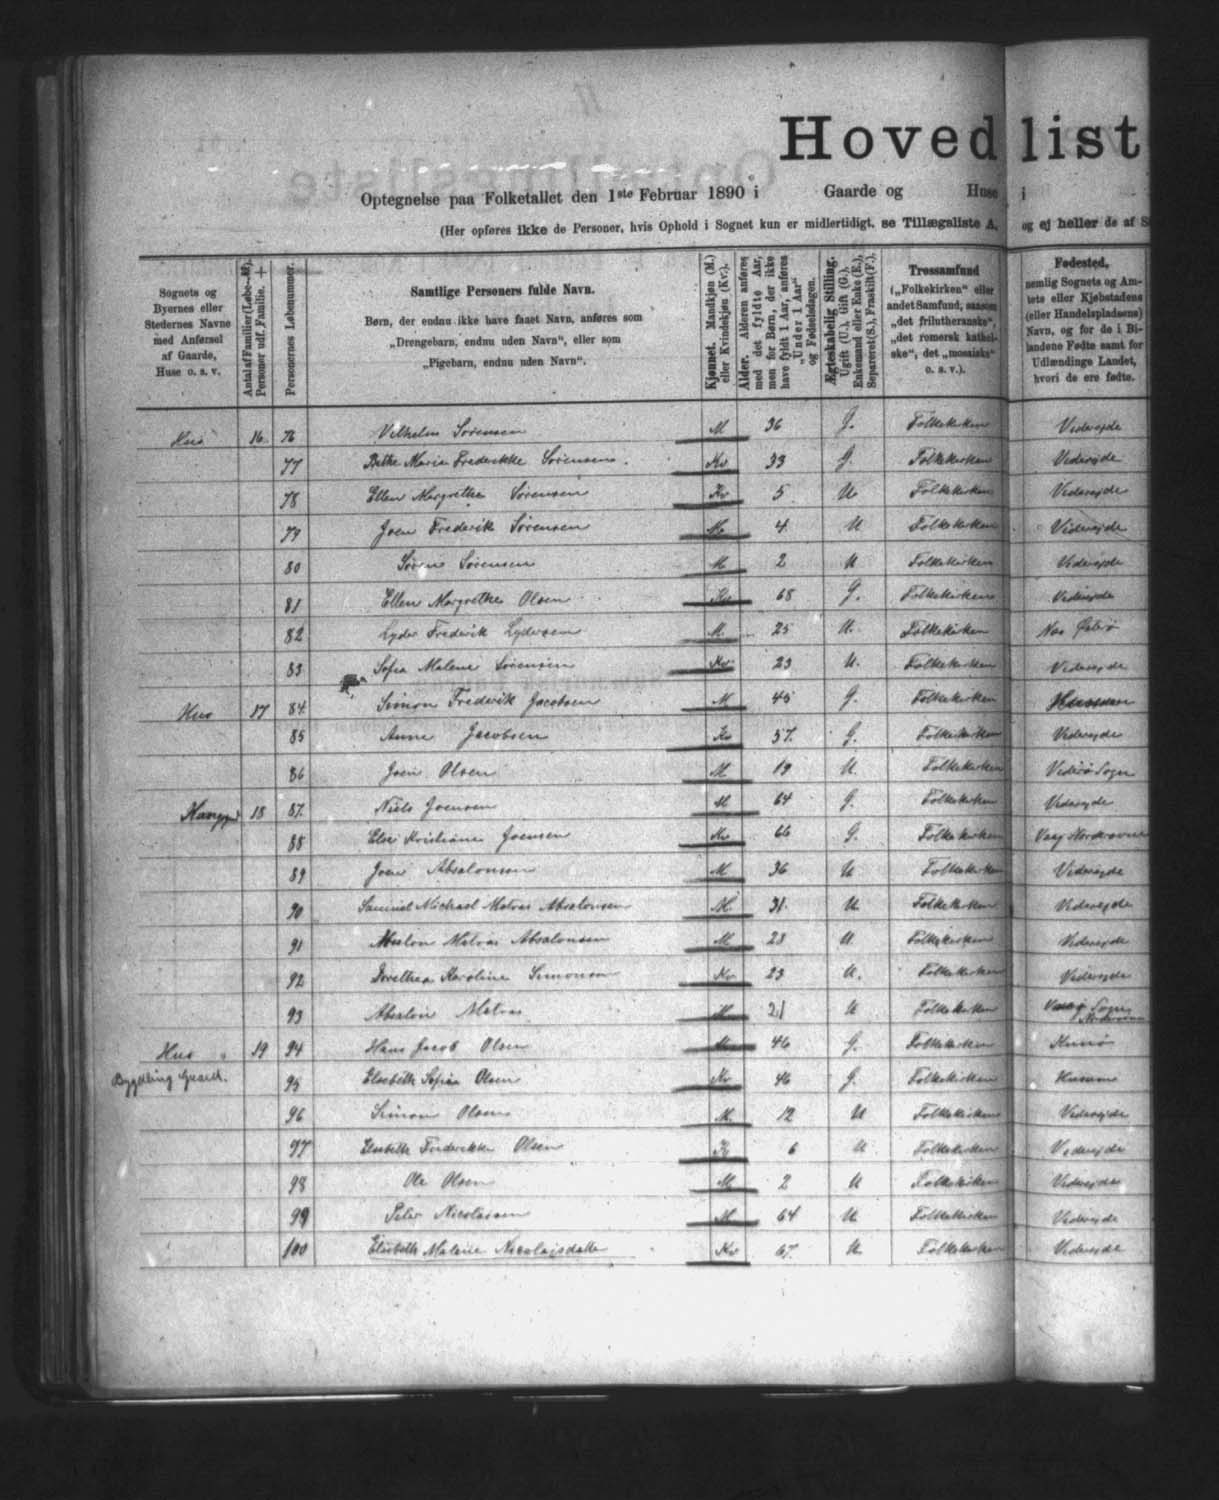 Hovedlist
Optegnelse paa Folketallet den 1ste Februar 1890 i Gaarde og Huse i
(Her opføres ikke de Personer, hvis Ophold i Sognet kun er midlertidigt, se Tillægsliste A, og ej heller de af S
Sognets og Byernes eller Stedernes Navne med Anførsel af Gaarde, Huse o. s. v.
Antal af Familier (Løbe-№). Personer udf. Familie. +
Personernes Løbenummer.
Samtlige Personers fulde Navn.
Børn, der endnu ikke have faaet Navn, anføres som
„Drengebarn, endnu uden Navn", eller som
„Pigebarn, endnu uden Navn".
Kjønnet. Mandkjøn (M.) eller Kvindekjøn (Kv.).
Alder. Alderen anføres med det fyldte Aar, men for Børn, der ikke have fyldt 1 Aar, anføres „Under 1 Aar" og Fødselsdagen.
Ægteskabelig Stilling. Ugift (U.), Gift (G.), Enkemand eller Enke (E.), Separeret (S.), Fraskilt (F.).
Trossamfund („Folkekirken" eller andet Samfund, saasom „det frilutheranske", „det romersk katholske", det „mosaiske" o. s. v.).
Fødested, nemlig Sognets og Amtets eller Kjøbstadens (eller Handelspladsens) Navn, og for de i Bilandene Fødte samt for Udlændinge Landet, hvori de ere fødte.
Hus 16 76 Vilhelm Sørensen M 36 G. Folkekirken Viderejde
77 Maria Frederikke Sørensen Kv 33 G. Folkekirken Viderejde
78 Ellen Margrethe Sørensen Kv 5 U Folkekirken Viderejde
79 Joen Frederik Sørensen M 4 U Folkekirken Viderejde
80 Sørensen M 2 U Folkekirken Viderejde
81 Ellen Margrethe Olsen Kv 68 G. Folkekirken Viderejde
82 Frederik M. 25 U. Folkekirken
83 Sofia Malene Sørensen Kv 23 U. Folkekirken Viderejde
Hus 17 84 Simon Frederik Jacobsen M 45 G. Folkekirken
85 Anna Jacobsen Kv 57. G. Folkekirken Viderejde
86 Joen Olsen M 19 U. Folkekirken Viderø Sogn
18 87. Niels Joensen M 64 G. Folkekirken Viderejde
88 Else Kristiane Joensen Kv 66 G. Folkekirken Vaag Norderøerne
89 Joen Absalonsen M 36 U Folkekirken Viderejde
90 Samuel Michael Matras Absalonsen M. 31. U Folkekirken Viderejde
91 Absalon Matras Absalonsen M 28 U. Folkekirken Viderejde
92 Dorethea Karoline Simonsen Kv 23 U. Folkekirken Viderejde
93 Absalon Matras M 21 U Folkekirken Sogn
Hus 19 94 Hans Jacob Olsen 46 G. Folkekirken Kunø
Bygdling Gaard. 95 Elsebeth Sofia Olsen Kv 46 G. Folkekirken Husum
96 Simon Olsen M. 12 U Folkekirken Viderejde
97 Elsebeth Frederikke Olsen K 6 U Folkekirken Viderejde
98 Ole Olsen M 2 U Folkekirken Viderejde
99 Peter Nicolaisen M 64 U Folkekirken Viderejde
100 Elsebeth Malene Nicolajsdatter Kv 67. U Folkekirken Viderejde